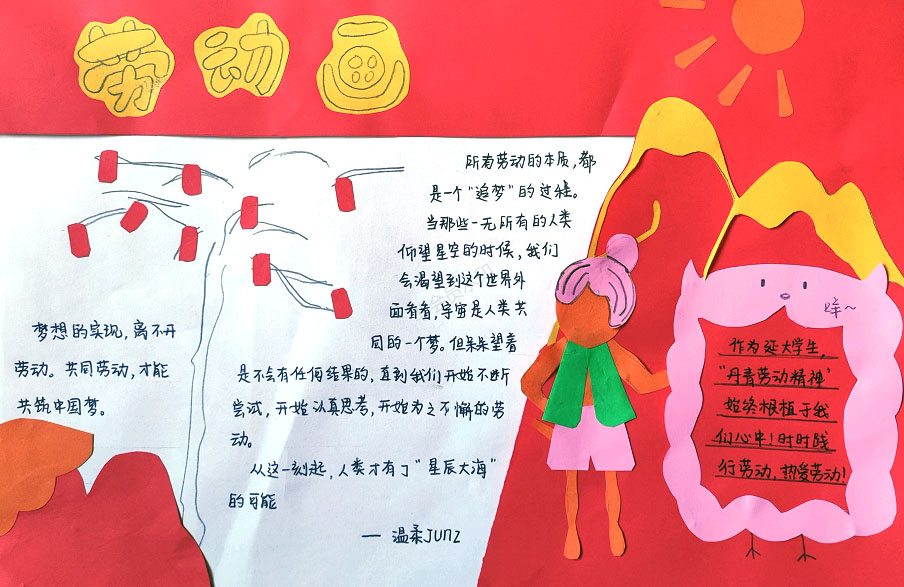 劳动画
所有劳动的本质，都
是一个“追梦”的过程。
当那些一无所有的人类
仰望星空的时候，我们
会渴望到这个世界外
面看看，宇宙是人类共
同的一个梦。但呆呆望着
是不会有任何结果的，直到我们开始不断
尝试，开始认真思考，开始为之不懈的劳
动。
从这一刻起，人类才有了“星辰大海”
的可能
— 温柔JUNZ
梦想的实现，离不开
劳动。共同劳动，才能
共筑中国梦。
咩~
作为延大学生，
“丹青劳动精神”
始终根植于我
们心中！时时践
行劳动，热爱劳动！